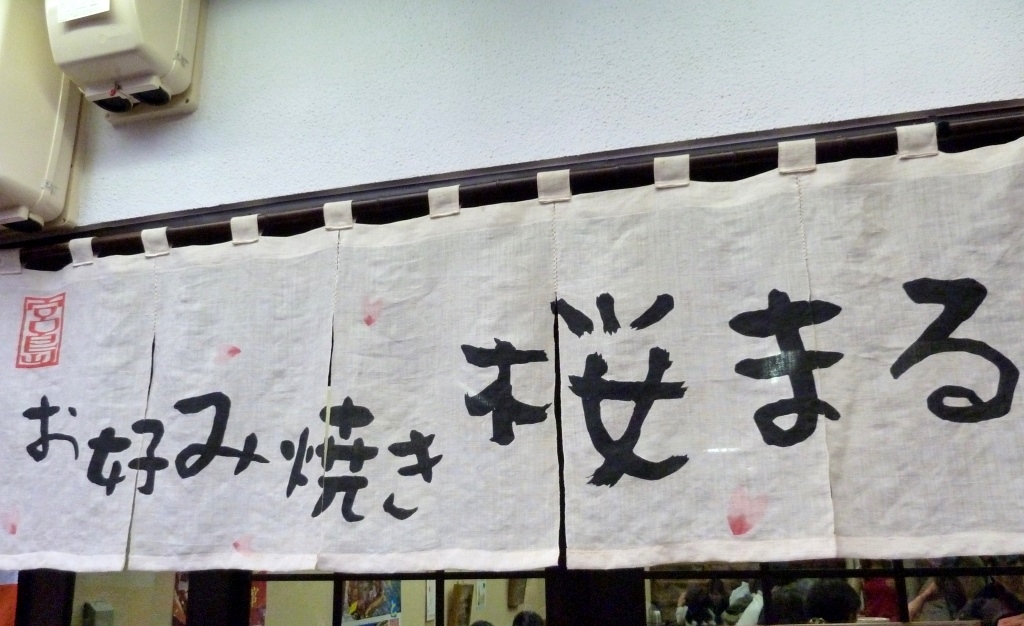 宮島
お好み焼き 桜まる